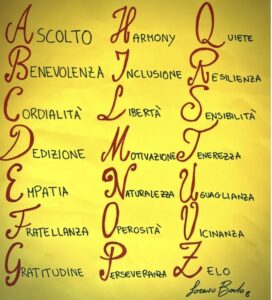 ASCOLTO
BENEVOLENZA
CORDIALITÀ
DEDIZIONE
EMPATIA
FRATELLANZA
GRATITUDINE
HARMONY
INCLUSIONE
LIBERTÀ
MOTIVAZIONE
NATURALEZZA
OPEROSITÀ
PERSEVERANZA
QUIETE
RESILIENZA
SENSIBILITÀ
TENEREZZA
UGUAGLIANZA
VICINANZA
ZELO
Lorenzo